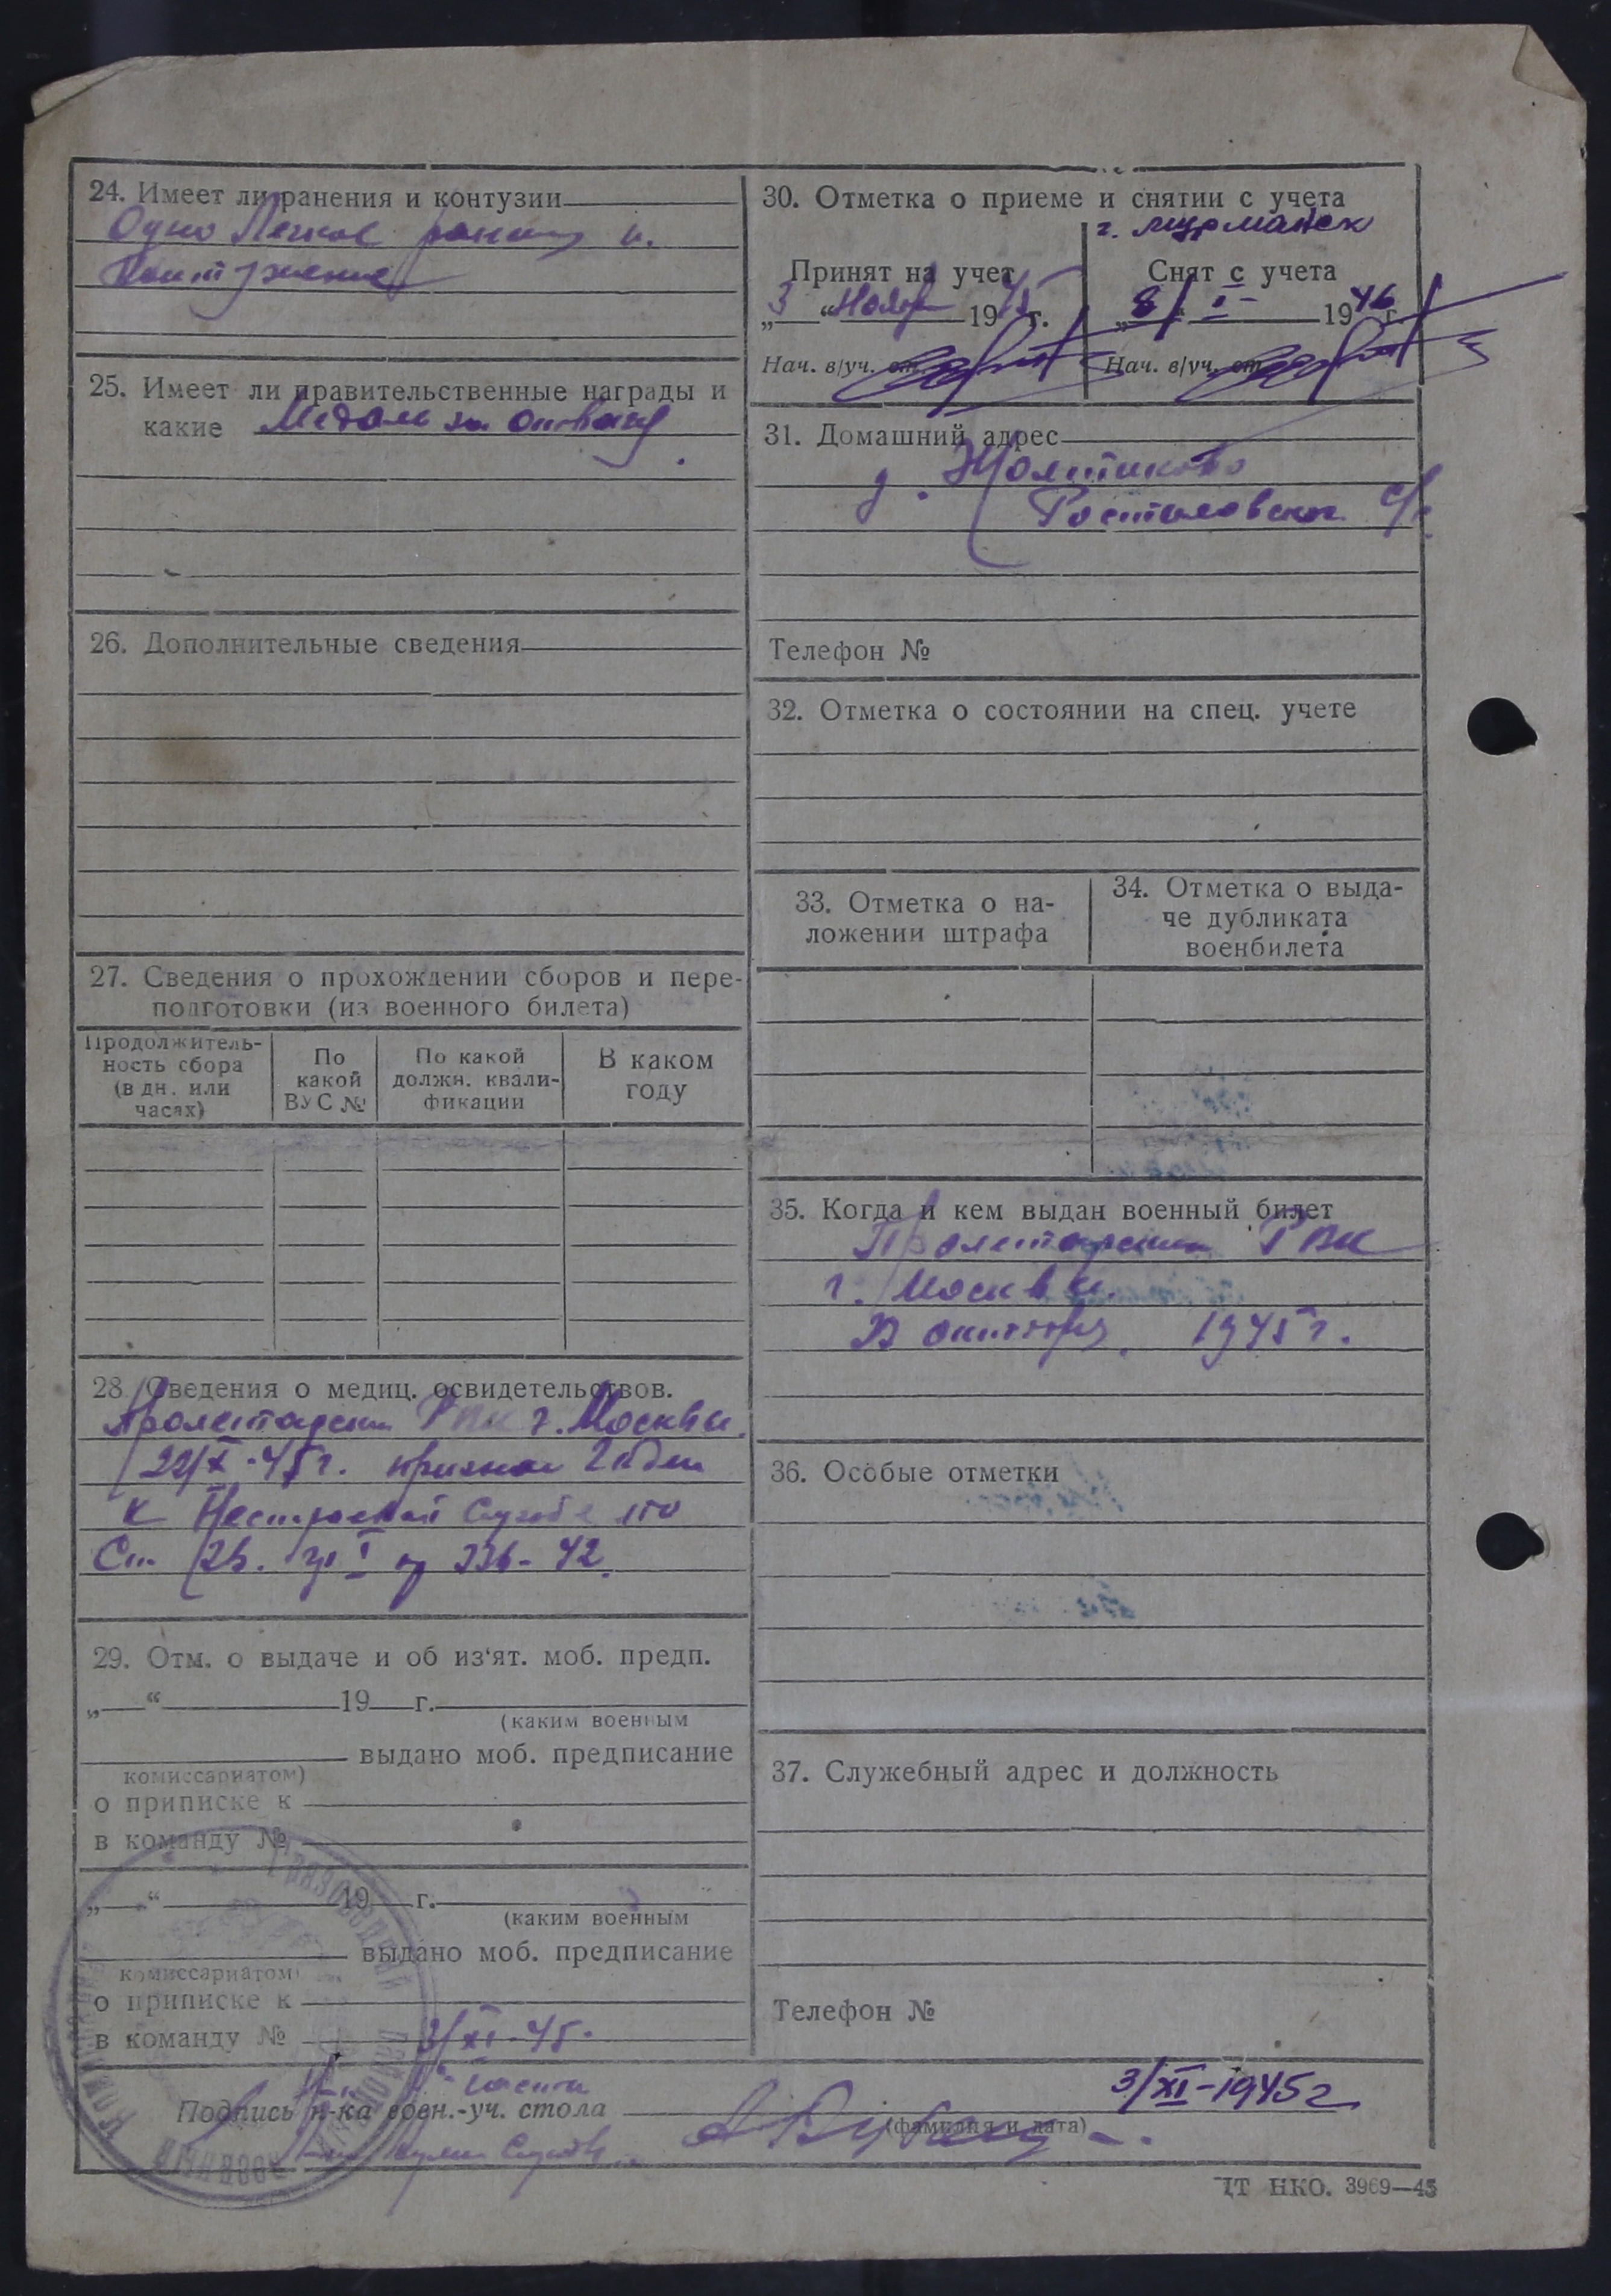 24. Имеет ли ранения и контузии
Одно Легкое ранение и.
25. Имеет ли правительственные награды и
какие Медаль за отвагу
26. Дополнительные сведения
27. Сведения о прохождении сборов и пере-
подготовки (из военного билета)
Продолжитель-
ность сбора
(в дн. или
часах)
По
какой
ВУС №
По какой
должн. квали-
фикации
В каком
году
28. Сведения о медиц. освидетельствов.
Пролетарским РВК г. Москвы.
22/X-45г. признан годен
к Нестроевой Службе по
Ст.
336-42.
29. Отм. о выдаче и об из‘ят. моб. предп.
„ “ 19 г.
(каким военным
выдано моб. предписание
комиссариатом)
о приписке к
в команду №
„ “ 19 г.
(каким военным
выдано моб. предписание
комиссариатом)
о приписке к
в команду № 3/XI-45.
30. Отметка о приеме и снятии с учета
г. Мурманск
Принят на учет
„3“ Ноября 1945г.
Нач. в/уч. от.
Снят с учета
„8/“ I- 1946г.
Нач. в/уч. от.
31. Домашний адрес
д.
с/с
Телефон №
32. Отметка о состоянии на спец. учете
33. Отметка о на-
ложении штрафа
34. Отметка о выда-
че дубликата
военбилета
35. Когда и кем выдан военный билет
Пролетарским РВК
г. Москвы.
В октябре 1945г.
36. Особые отметки
37. Служебный адрес и должность
Телефон №
3/XI-1945г
Подпись н-ка воен.-уч. стола
(фамилия и дата)
ЦТ НКО. 3969—45